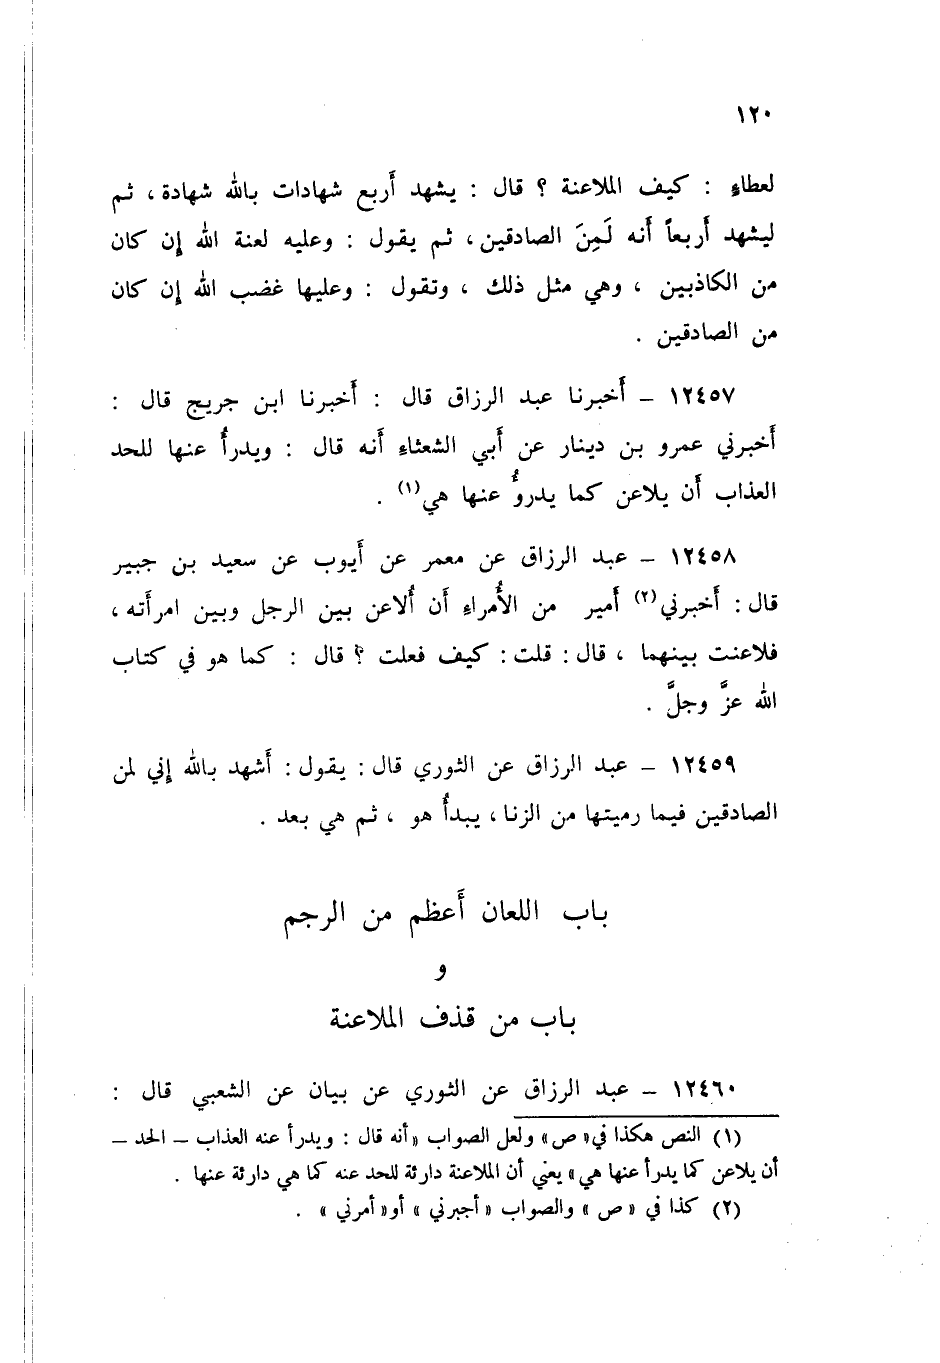 ١٢٠
لعطاءٍ : كيف الملاعنة ؟ قال : يشهد أَربع شهادات بالله شهادة ، ثم
ليشهد أَربعاً أَنه لَمِنَ الصادقين ، ثم يقول : وعليه لعنة الله إِن كان
من الكاذبين ، وهي مثل ذلك ، وتقول : وعليها غضب الله إِن كان
من الصادقين .
١٢٤٥٧ – أَخبرنا عبد الرزاق قال : أَخبرنا ابن جريج قال :
أَخبرني عمرو بن دينار عن أَبي الشعثاءِ أَنه قال : ويدرأُ عنها للحد
العذاب أَن يلاعن كما يدروُّ عنها هي(١) .
١٢٤٥٨ – عبد الرزاق عن معمر عن أَيوب عن سعيد بن جبير
قال : أَخبرني(٢) أَمير من الأُمراءِ أَن أُلاعن بين الرجل وبين امرأَته ،
فلاعنت بينهما ، قال : قلت : كيف فعلت ؟ قال : كما هو في كتاب
الله عزَّ وجلَّ .
١٢٤٥٩ – عبد الرزاق عن الثوري قال : يقول : أَشهد بالله إِني لمن
الصادقين فيما رميتها من الزنا ، يبدأُ هو ، ثم هي بعد .
باب اللعان أَعظم من الرجم
و
باب من قذف الملاعنة
١٢٤٦٠ – عبد الرزاق عن الثوري عن بيان عن الشعبي قال :
(١) النص هكذا في « ص » ولعل الصواب « أنه قال : ويدرأ عنه العذاب – الحد –
أن يلاعن كما يدرأ عنها هي » يعني أن الملاعنة دارئة للحد عنه كما هي دارئة عنها .
(٢) كذا في « ص » والصواب « أجبرني » أو « أمرني » .